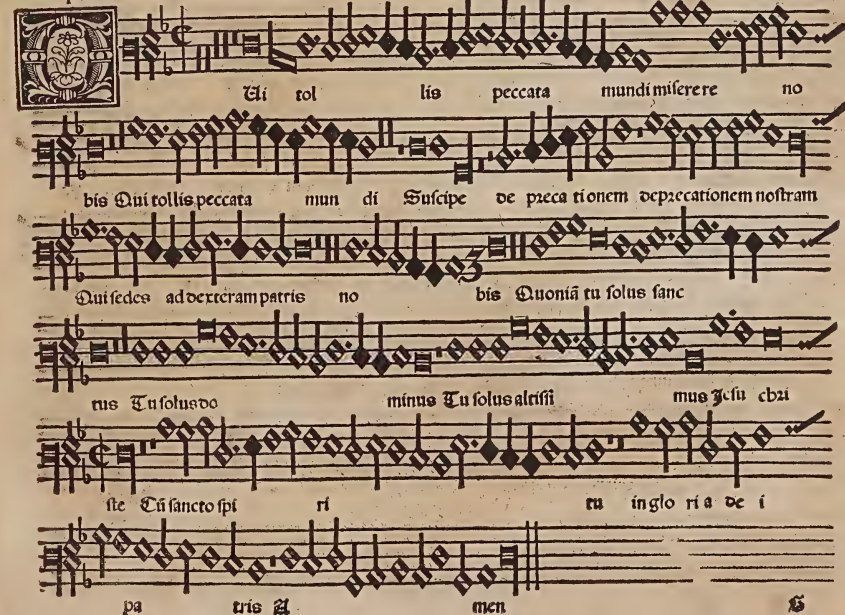 Ui tol lis peccata mundi miserere no
bis Qui tollis peccata mun di Suscipe de preca tionem deprecationem nostram
Qui sedes ad dexteram patris no bis Quoniã tu solus sanc
tus Tu solus do minus Tu solus altissi mus Jesu chri
ste Cũ sancto spi ri tu in glo ri a de i
pa tris A men